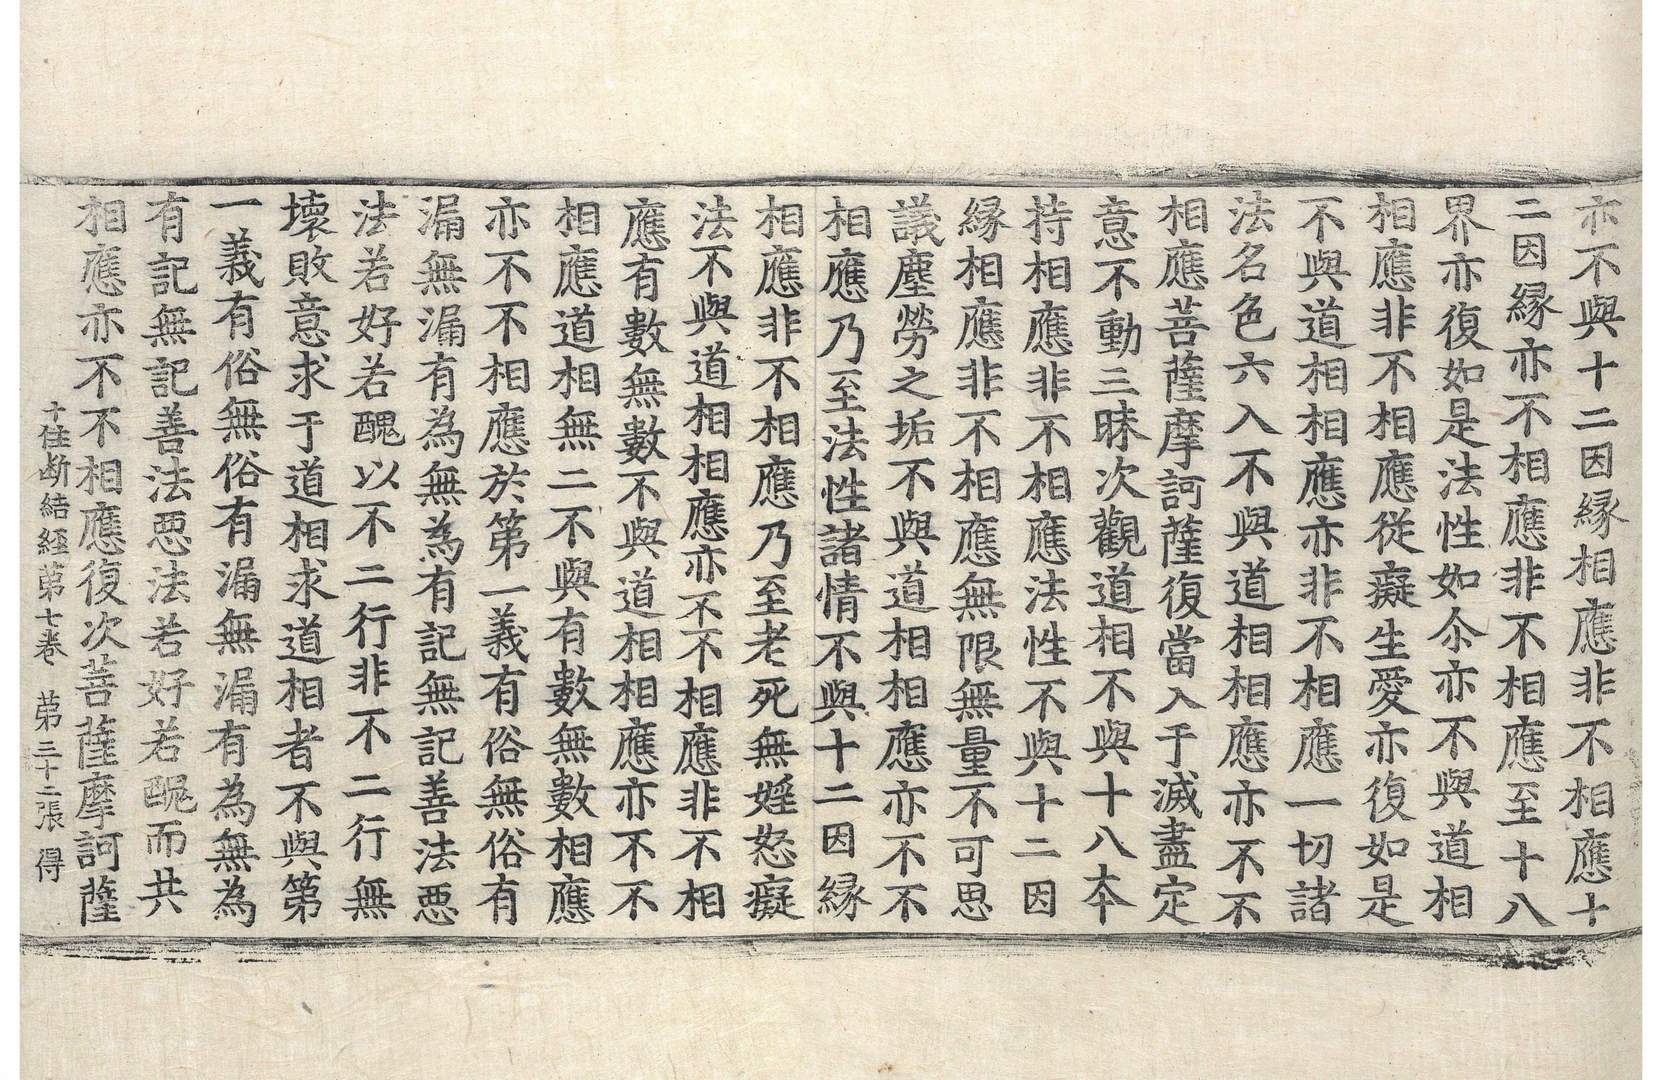 亦不與十二因縁相應非不相應十
二因縁亦不相應非不相應至十八
界亦復如是法性如尒亦不與道相
相應非不相應從癡生愛亦復如是
不與道相相應亦非不相應一切諸
法名色六入不與道相相應亦不不
相應菩薩摩訶薩復當入于滅盡定
意不動三昧次觀道相不與十八本
持相應非不相應法性不與十二因
縁相應非不相應無限無量不可思
議塵勞之垢不與道相相應亦不不
相應乃至法性諸情不與十二因縁
相應非不相應乃至老死無婬怒癡
法不與道相相應亦不不相應非不相
應有數無數不與道相相應亦不不
相應道相無二不與有數無數相應
亦不不相應於第一義有俗無俗有
漏無漏有為無為有記無記善法悪
法若好若醜以不二行非不二行無
壞敗意求于道相求道相者不與第
一義有俗無俗有漏無漏有為無為
有記無記善法悪法若好若醜而共
相應亦不不相應復次菩薩摩訶薩
十住断結經第七卷 第三十二張 得